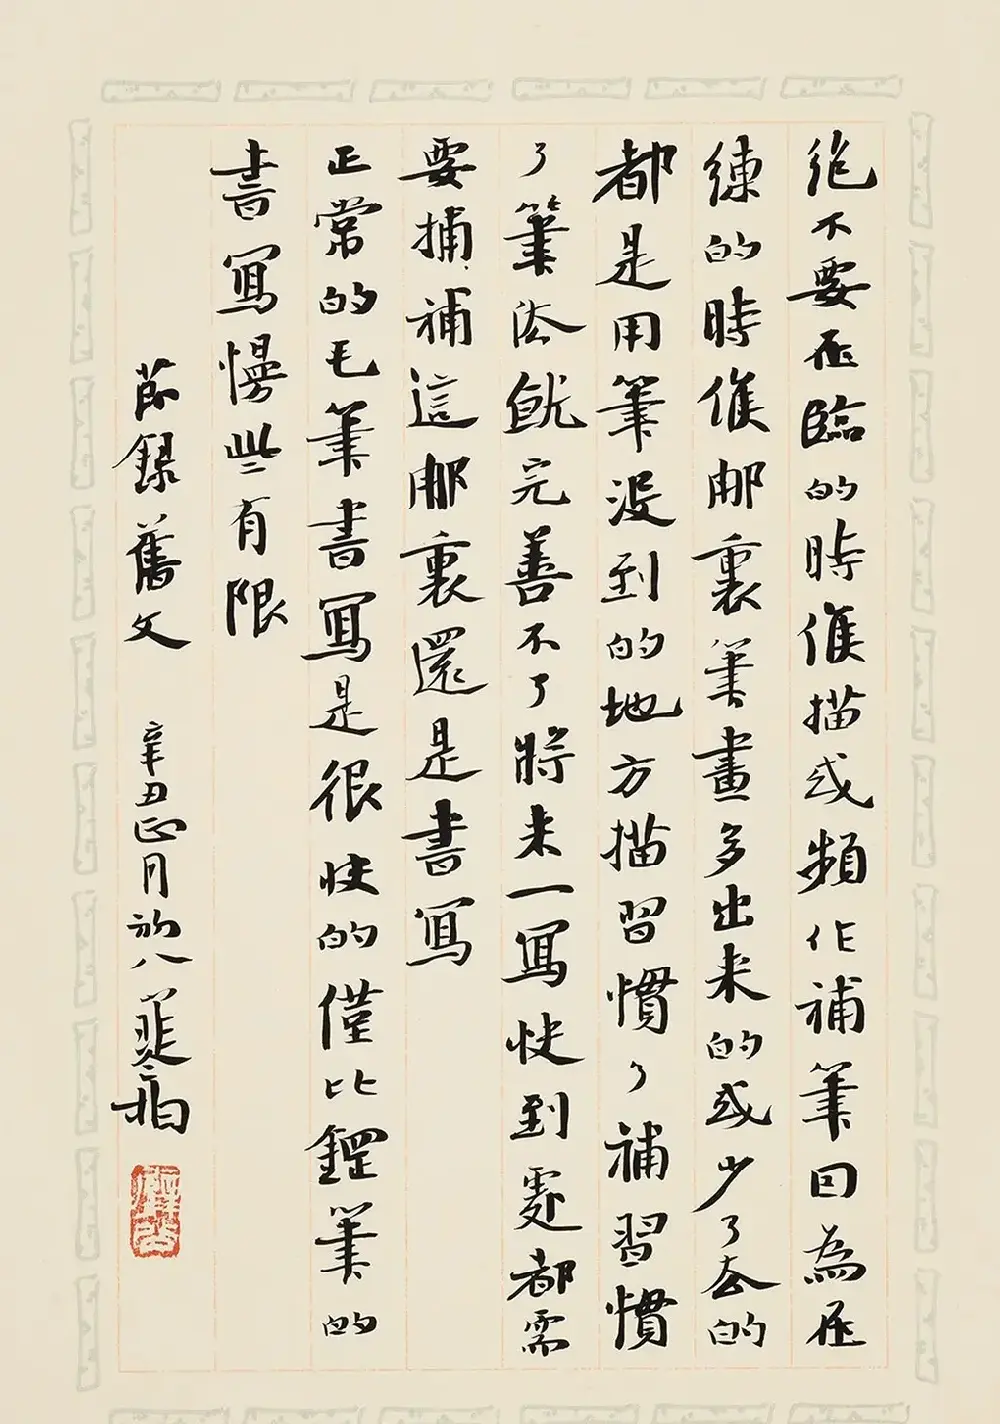 絶不要在臨的時候描或頻作補筆因為在
練的時候那裏筆畫多出來的或少了去的
都是用筆沒到的地方描習慣了補習慣
了筆法就完善不了將來一寫快到處都需
要捕補這那裏還是書寫
正常的毛筆書寫是很快的僅比鋼筆的
書寫慢些有限
節錄舊文 辛丑正月初八